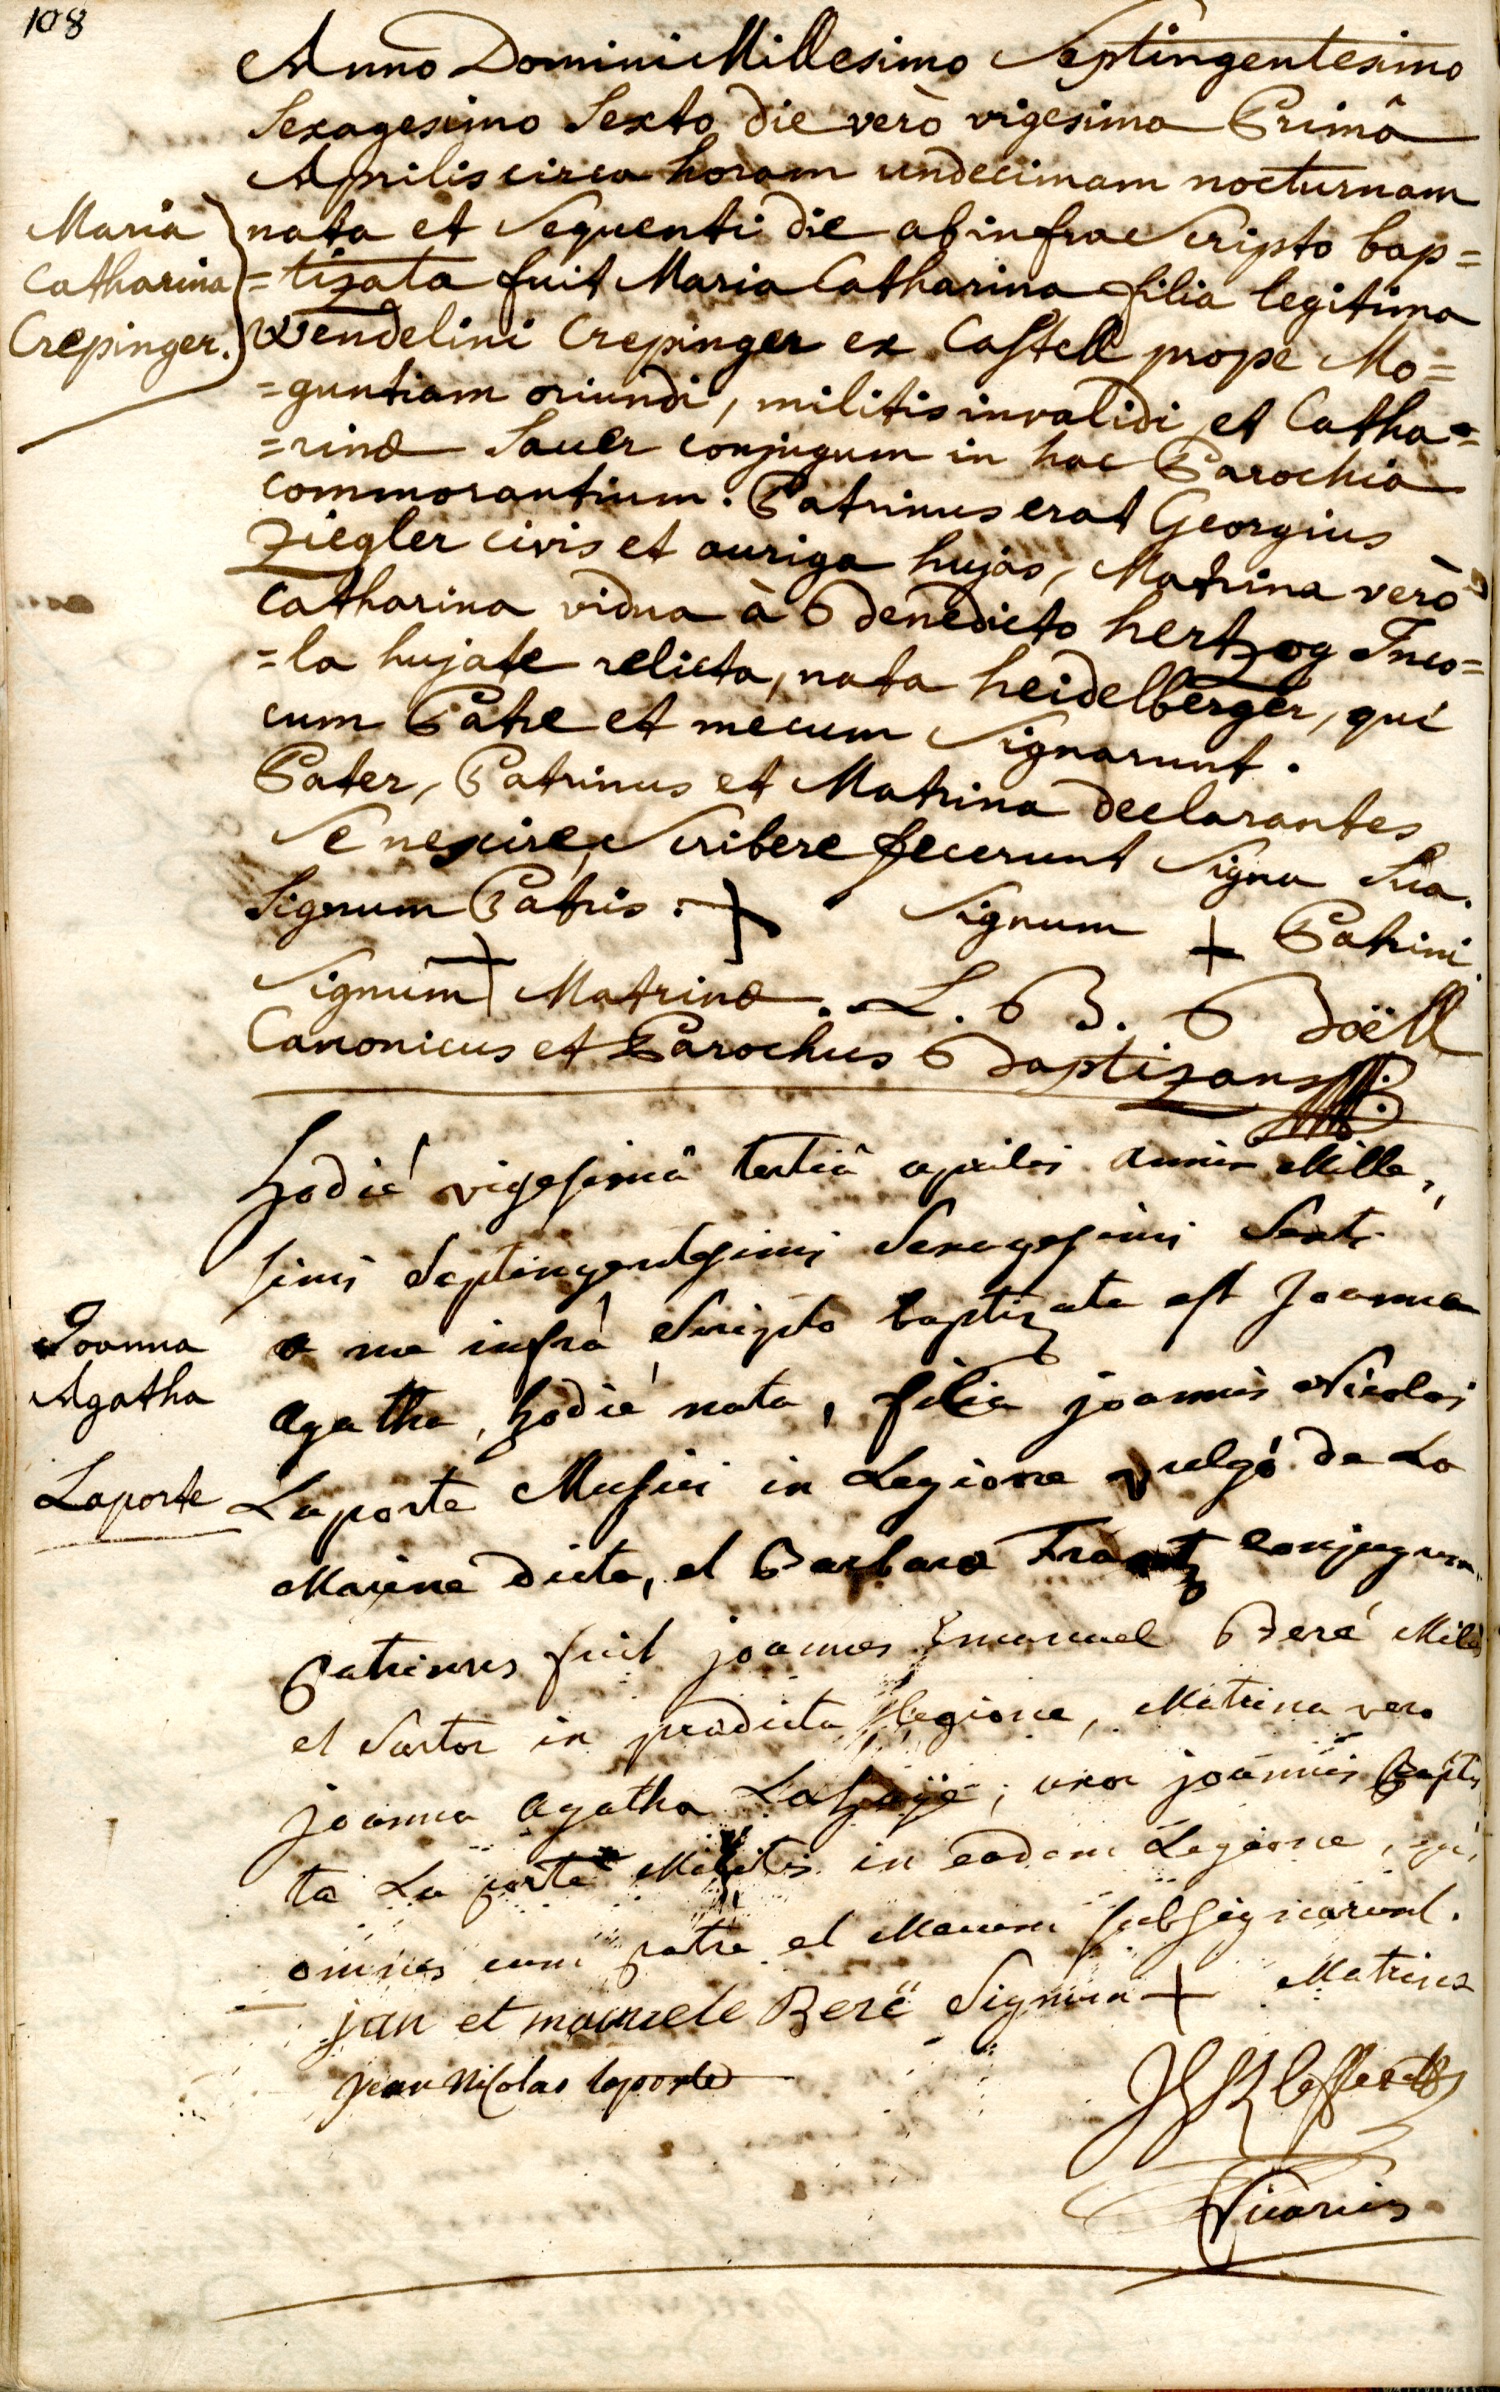 108
Anno Domini Millesimo Septingentesimo
Sexagesimo Sexto die verò vigesima Primâ
Aprilis circa horam undecimam nocturnam
Maria
Catharina
Crepinger.
nata et Sequenti die ab infra Scripto bap=
=tizata fuit Maria Catharina filia legitima
Wendelini Crepinger ex Castell prope Mo=
=guntiam oriundi, militis invalidi et Catha=
=rinæ Sauer conjugum in hac Parochia
commorantium. Patrinus erat Georgius
Ziegler civis et auriga hujas, Matrina verò
Catharina vidua à Benedicto hertzog Inco=
=la hujate relicta, nata heidelberger, qui
cum Patre et mecum Signarunt.
Pater, Patrinus et Matrina declarantes
Se nescire Scribere fecerunt Signa Sua.
Signum Patris. + Signum + Patrini.
Signum + Matrinæ. L. B. Boëll
Canonicus et Parochus Baptizans
hodiè vigesimâ tertiâ aprilis anni Mille,
simi Septingentesimi Sexagesimi Sexti
Joanna
Agatha
Laporte
a me infrà Scripto baptizata est Joanna
Agatha, hodiè nata, filia joannis Nicolai
Laporte Musici in Legione vulgò de La
Marine dicta, et Barbaræ Frantz conjugum,
Patrinus fuit joannes Emanuel Beré Miles
et Sartor in prædicta Legione, Matrina vero
joanna Agatha Lahaÿe, uxor joannis Baptis
ta La porte Militis in eadem Legione, qui
omnes cum patre et Mecum subsignarunt.
jan et manuele Berë Signum + Matrinæ
jean nicolas laporte
Vicarius